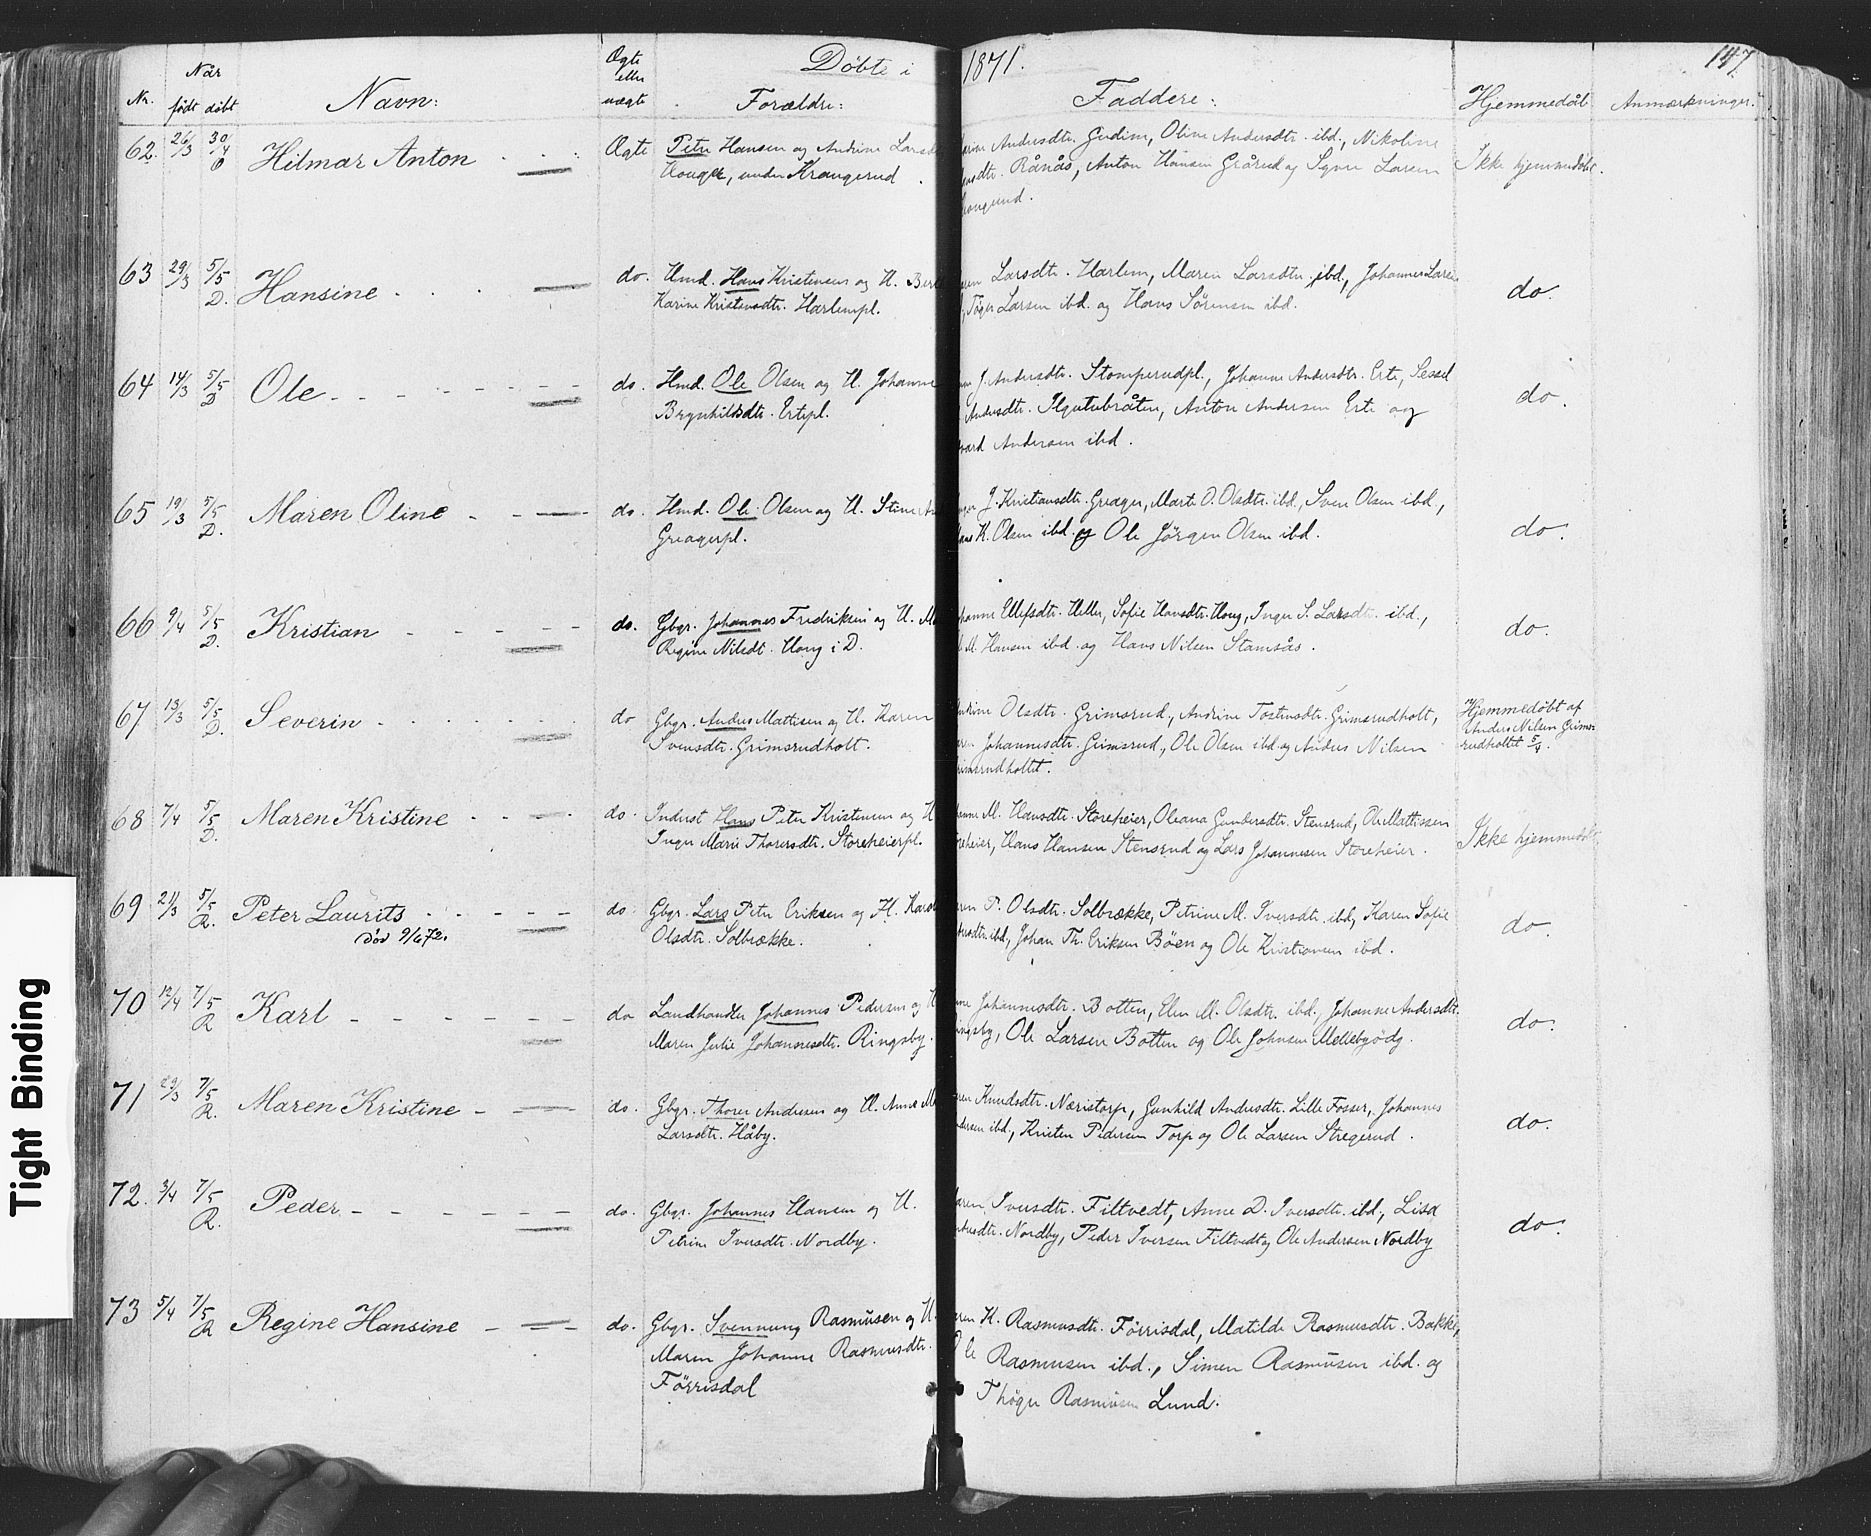 Døbte i 1871. 147.
Nr. Når født døbt Navn: Ægte eller uægte Forældre: Faddere: Hjemmedåb Anmærkninger.
62. 26/3 30/4 Hilmar Anton Ægte Peter Hansen og Andrine Larsd Andersdtr. Gudim, Oline Andersdtr. ibd., Nikoline
Ø Haugen, under Krangerud. Rånås, Anton Hansen Grårud og Larsen Ikke hjemmedøbt.
63 29/3 5/5 Hansine do. Hmd. Hans Kristensen og H. Larsdtr. Harlem, Maren Larsdtr. ibd., Johannes Larsen do.
D. Karine Kristensdtr. Harlempl. Tøger Larsen ibd. og Hans Sørensen ibd.
64 14/3 5/5 Ole do. Hmd. Ole Olsen og H. Johanne J. Andersdtr. Stomperudpl., Johanne Andersdtr. Erte, Sessel
D Brynhildsdtr. Ertepl. Andersdtr. Anton Andersen Erte og do.
Andersen ibd.
65 19/3 5/5 Maren Oline do. Hmd. Ole Olsen og H. Stine J. Kristiansdtr. Greager, Marte O. Olsdtr. ibd., Sven Olsen ibd.,
D. Greagerpl. K. Olsen ibd. og Ole Jörgen Olsen ibd. do.
66 9/4 5/5 Kristian do. Gbgr. Johannes Fredriksen og H. Ellefsdtr. Heller, Sofie Hansdtr. Haug, Inger S. Larsdtr. ibd.,
D. Regine Nilsdt. Haug i D. M. Hansen ibd. og Hans Nilsen Stamsås. do.
67 13/3 5/5 Severin do Gbgr. Anders Mattisen og H. Karen Olsdtr. Grimsrud, Andrine Tostensdtr. Grimsrudholt, Hjemmedøbt af
D. Svensdtr. Grimsrudholt. Johannesdtr. Grimsrud, Ole Olsen ibd. og Anders Nilsen Anders Nilsen Grims-
rudholtet 5/4.
68 7/4 5/5 Maren Kristine do. Inderst Hans Peter Kristensen og H M. Hansdtr. Storeheier, Oleana Gundersdtr. Stensrud, Ole Mattissen
D. Inger Marie Thorersdtr. Storeheierpl. Hans Hansen Stensrud og Lars Johannesen Storeheier. Ikke hjemmedøbt
69 21/3 5/5 Peter Laurits do. Gbgr. Lars Peter Eriksen og H. P. Olsdtr. Solbrække, Petrine M. Iversdtr. ibd., Karen Sofie
R. død 9/6 72. Olsdtr. Solbrække. ibd., Johan Th. Eriksen Böen og Ole Kristiansen ibd. do
70 12/4 7/5 Karl do Landhandler Johannes Pedersen og H Johannesdtr. Botten, Elen M. Olsdtr. ibd., Johanne Andersdtr.
R Maren Julie Johannesdtr. Ringsby. Ole Larsen Botten og Ole Johnsen Mellebyödg. do.
71 29/3 7/5 Maren Kristine do. Gbgr. Thorer Andersen og H. Anne Knudsdtr. Næristorp, Gunhild Andersdtr. Lille Fosser, Johannes
R. Larsdtr. Håby. ibd., Kristen Pedersen Torp og Ole Larsen Stregerud. do.
72. 3/4 7/5 Peder do. Gbgr. Johannes Hansen og H. Iversdtr. Filtvedt, Anne D. Iversdtr. ibd., Lisa
R. Petrine Iversdtr. Nordby. Nordby, Peder Iversen Filtvedt og Ole Andersen Nordby do.
73 5/4 7/5 Regine Hansine do. Gbgr. Svennung Rasmusen og H K. Rasmusdtr. Förrisdal, Matilde Rasmusdtr. Bakke,
R Maren Johanne Rasmusdtr. Ole Rasmusen ibd., Simen Rasmusen ibd. og
Förrisdal Thöger Rasmusen Lund.
Tight Binding